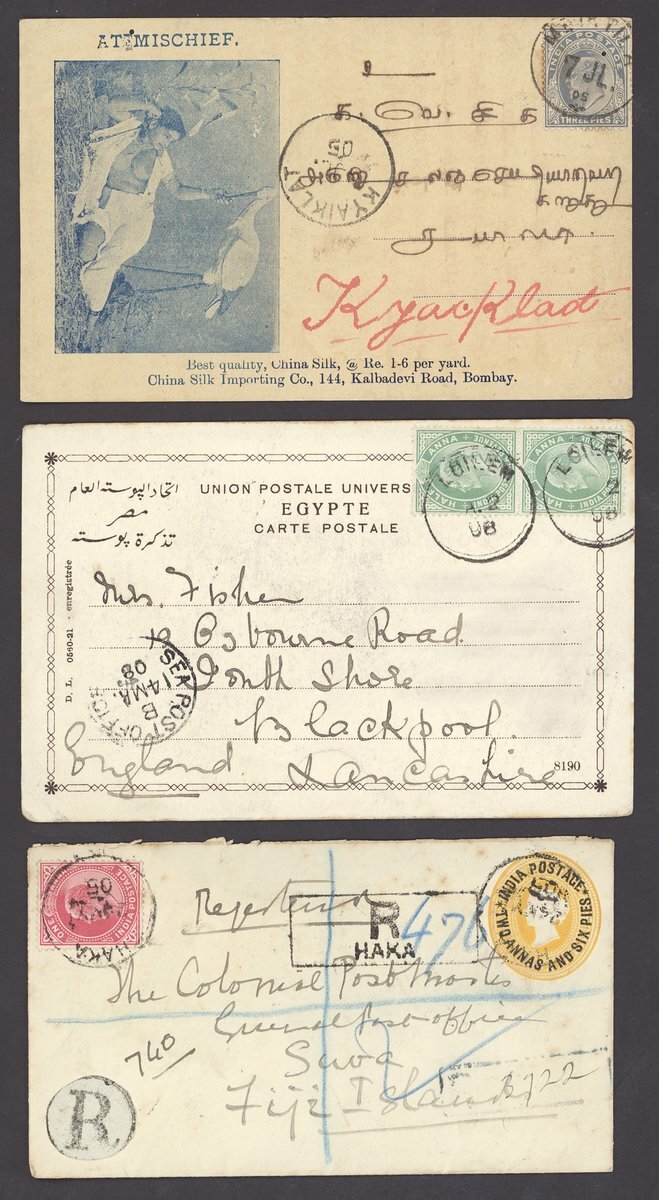 AT MISCHIEF.
MANDALA
7 JL.
05
INDIA POSTAGE
THREE PIES
KYAIKLAT
05
க. வெ. சி க
ரயாலா.
Kyacklad
Best quality, China Silk, @ Re. 1-6 per yard.
China Silk Importing Co., 144, Kalbadevi Road, Bombay.
اتحاد البوسته العام
مصر
تذكرة بوسته
UNION POSTALE UNIVERS
EGYPTE
CARTE POSTALE
LOILEM
2
08
LOILEM
2
08
D. L. 0560-21 - enregistrée
Mrs. Fisher
Osbourne Road
South Shore
Blackpool.
England. Lancashire
SEA POST OFFICE
B
14 MA
08
8190
HAKA
05
INDIA POSTAGE
ONE
Registered
R
HAKA
476
INDIA POSTAGE
TWO ANNAS AND SIX PIES
The Colonial Postmaster
General Post office
Suva
Fiji Islands
740
B722
R